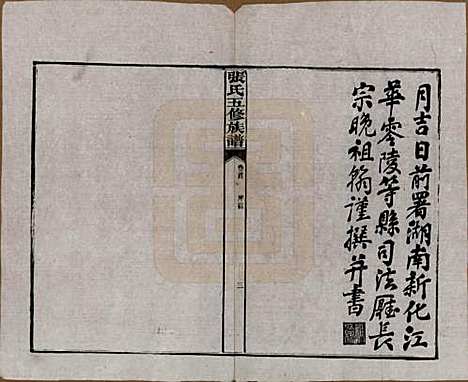 月吉日前署湖南新化江
華零陵等縣司法廳長
宗晚祖翰謹撰并書
張氏五修族譜
卷首
三